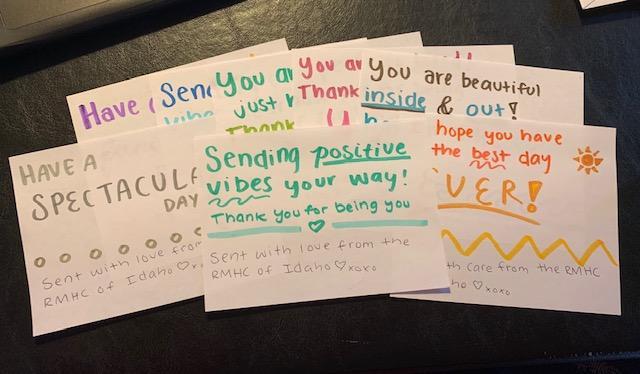 Have
You
just
Thank
You
Thank
You are beautiful
inside & out!
HAVE A
SPECTACULA
DAY
Sent with love from
RMHC of Idaho ♡x
Sending positive
vibes your way!
Thank you for being you
♡
Sent with love from the
RMHC of Idaho ♡xoxo
hope you have
the best day
VER!
th care from the RMHC
ho ♡xoxo